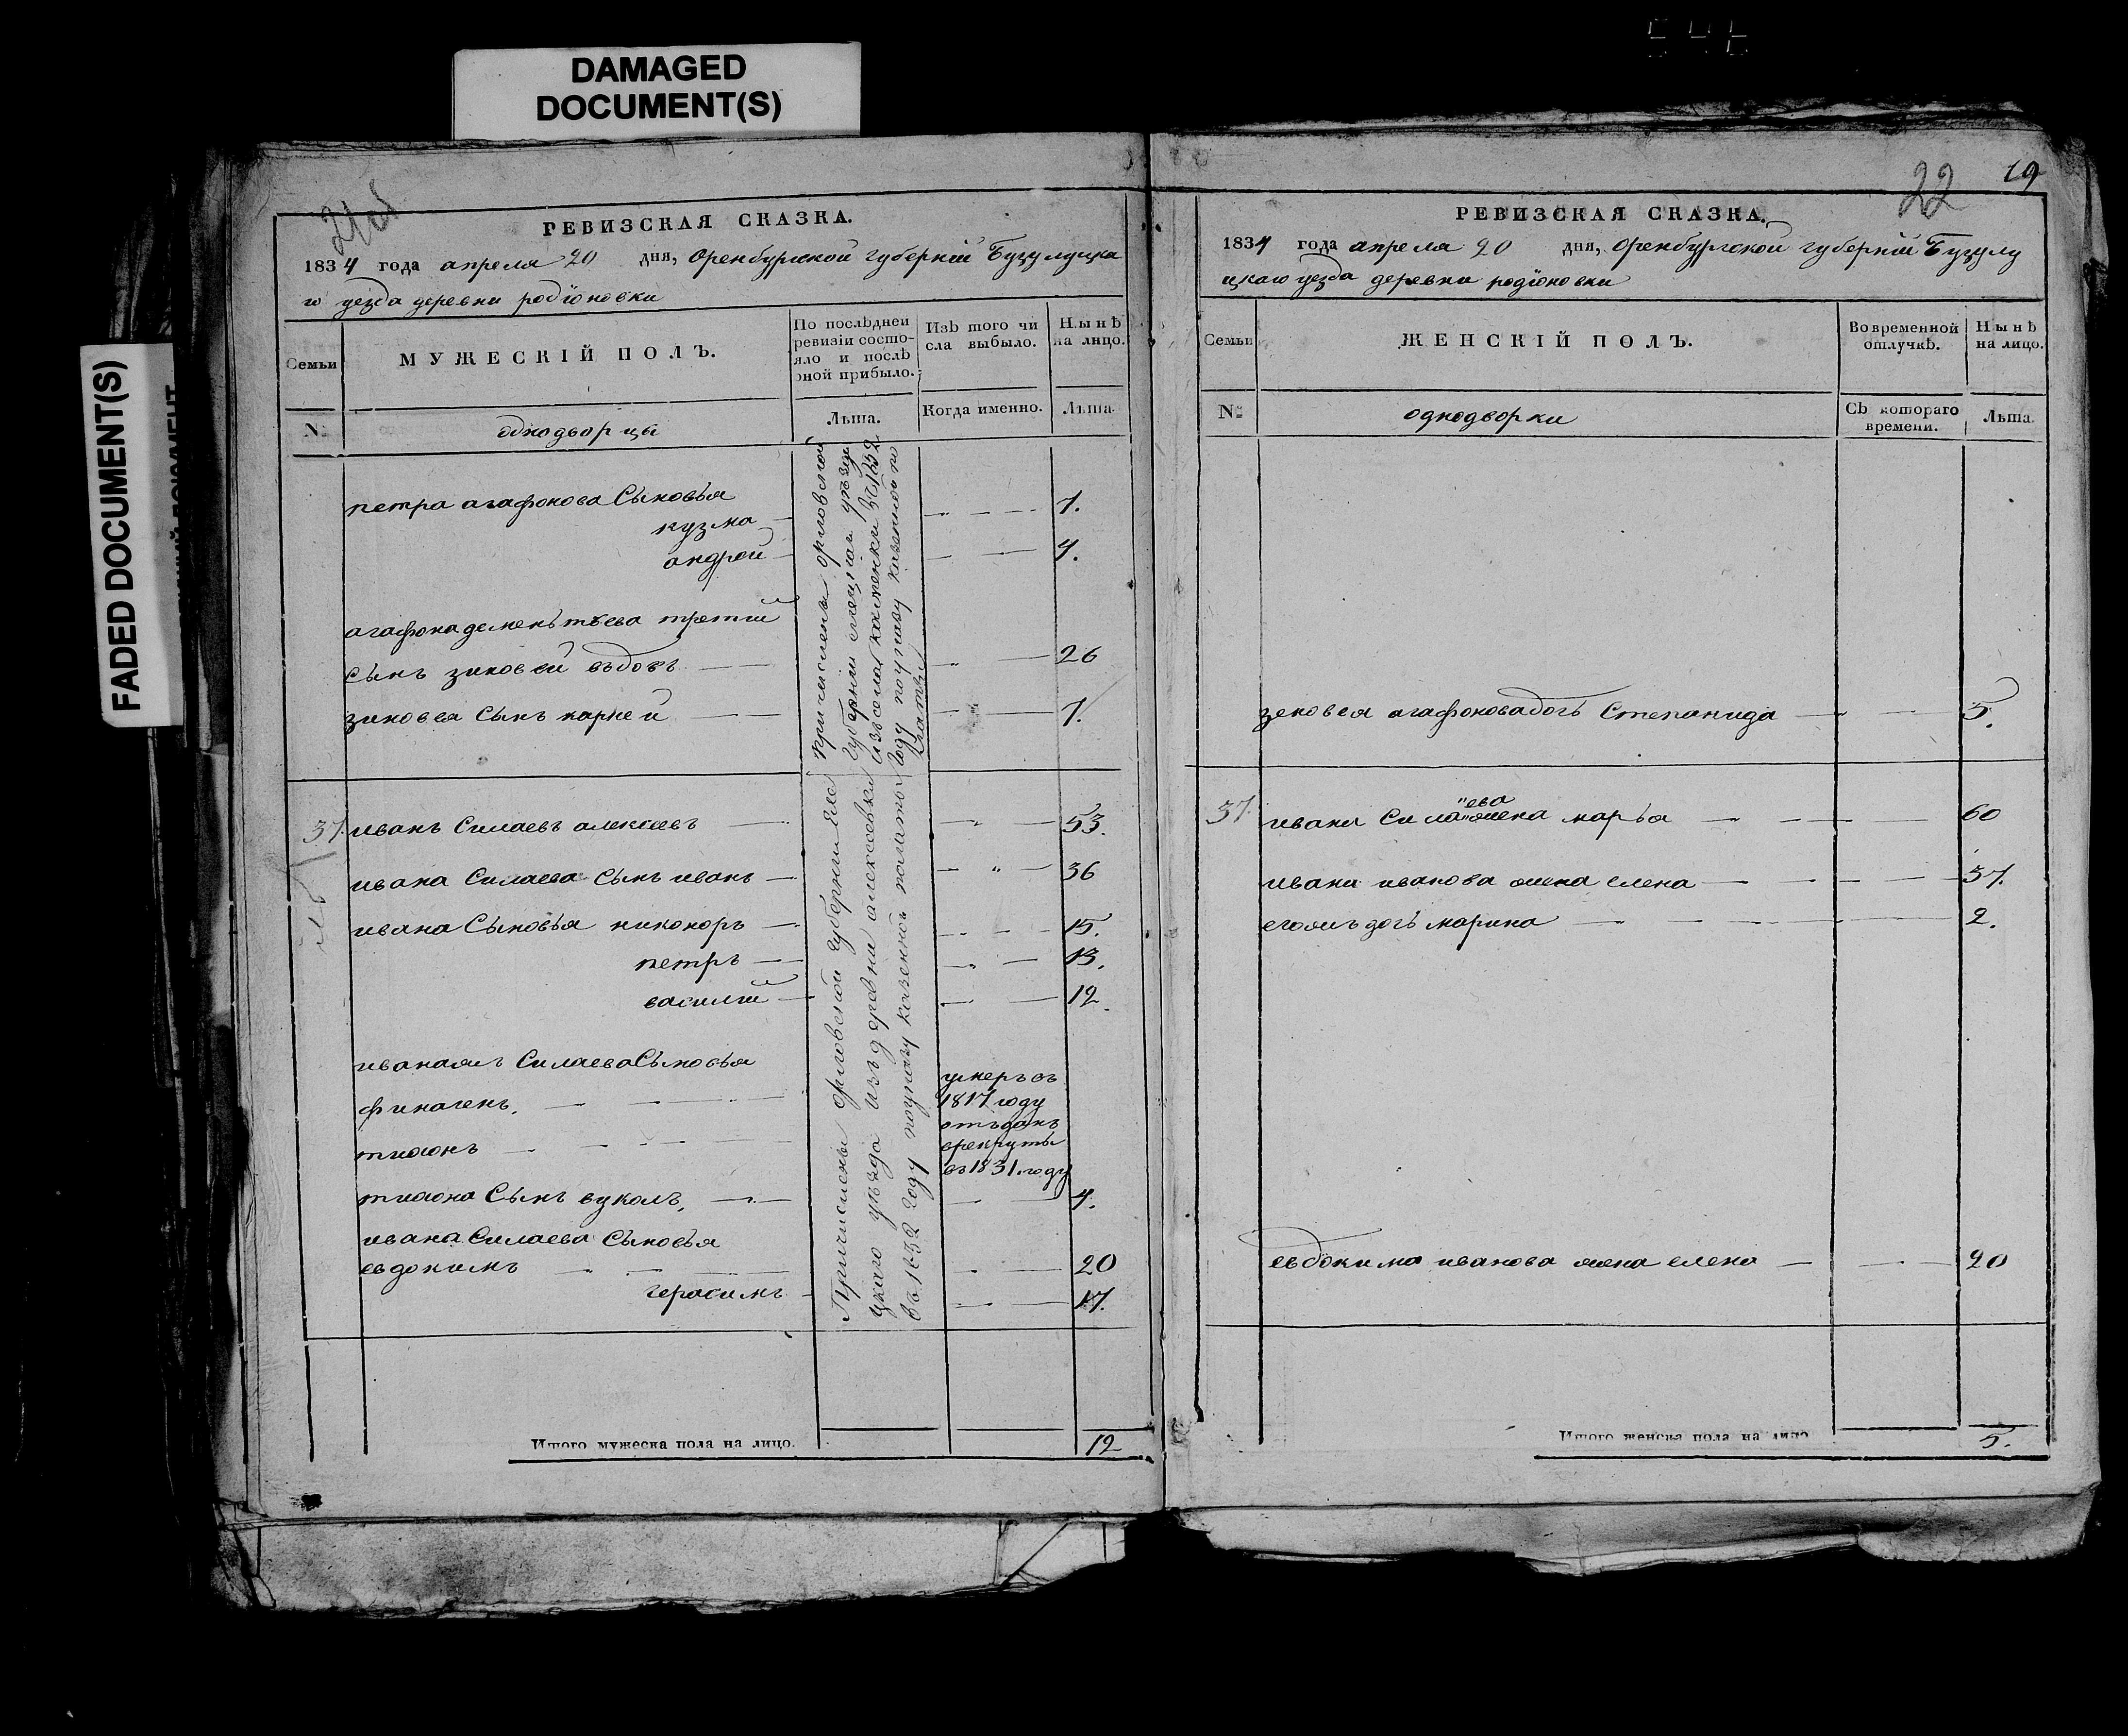 DAMAGED
DOCUMENT(S)
FADED DOCUMENT(S)
РЕВИЗСКАЯ СКАЗКА.
1834 года апреля 20 дня, Оренбургской губернїи Бузулуцка
го уезда деревни родїоновки
Семьи
МУЖЕСКІЙ ПОЛЪ.
По послѣдней
ревизіи состо-
яло и послѣ
оной прибыло.
Изъ того чи
сла выбыло.
Нынѣ
на лицо.
№
однодворцы
Лѣта.
Когда именно.
Лѣта.
петра агафонова Сыновья
кузма 7.
андрей 4.
агафона деменьтьева третий
сынъ зиновей въдовъ 26
зиновея Сынъ карпей 7.
причислены орловской
губернии елецкаго уезда
изъ села каменки въ 1832
году по указу казенной па
латы
37. иванъ Силаевъ алексеевъ 53.
ивана Силаева Сынъ иванъ 36
ивана Сыновья никоноръ 15.
петръ 13.
василий 12.
иванажъ Силаева Сыновья
финогенъ. умеръ въ
1817 году
тихонъ отъдан
в рекруты
въ 1831. году
тихона Сынъ вуколъ. 4.
ивана Силаева Сыновья
евдокимъ 20
герасимъ 17.
Причислены орловской губернии еле
цкаго уезда изъ деревни алексеевки
въ 1832 году по указу казенной палаты
Итого мужеска пола на лицо. 12
22 19
РЕВИЗСКАЯ СКАЗКА.
1834 года апреля 20 дня, Оренбургской губернїи Бузулу
цкаго уезда деревни родїоновки
Семьи
ЖЕНСКІЙ ПОЛЪ.
Во временной
отлучкѣ.
Нынѣ
на лицо.
№
однодворки
Съ котораго
времени.
Лѣта.
зеновея агафонова дочь Степанида 5.
37. ивана Силаева жена марья 60
ивана иванова жена елена 37.
егожъ дочь марина 2.
евдокима иванова жена елена 20
Итого женска пола на лицо 5.